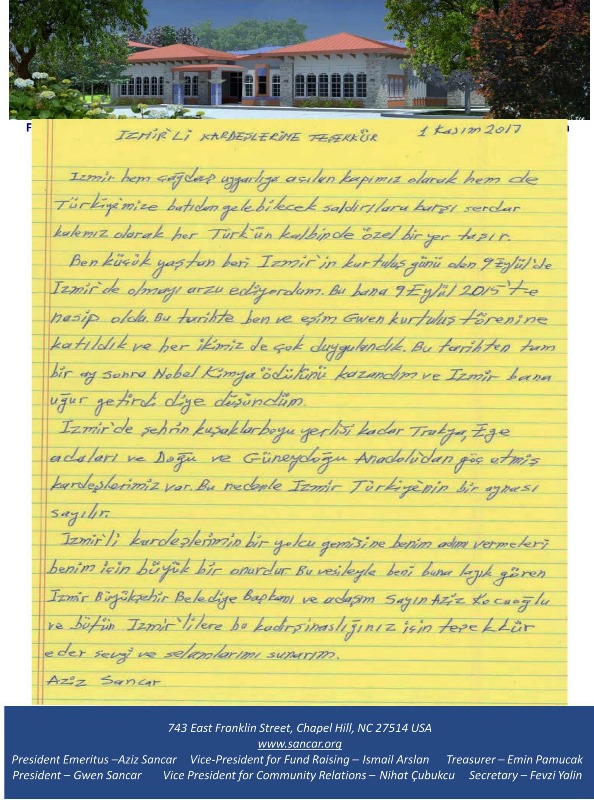 İZMİR'Lİ KARDEŞLERİME TEŞEKKÜR 1 Kasım 2017
İzmir hem çağdaş uygarlığa açılan kapımız olarak hem de
Türkiyemize batıdan gelebilecek saldırılara karşı serdar
kalemiz olarak her Türk'ün kalbinde özel bir yer taşır.
Ben küçük yaştan beri İzmir'in kurtuluş günü olan 9 Eylül'de
İzmir'de olmayı arzu ediyordum. Bu bana 9 Eylül 2015'te
nasip oldu. Bu tarihte ben ve eşim Gwen kurtuluş törenine
katıldık ve her ikimiz de çok duygulandık. Bu tarihten tam
bir ay sonra Nobel Kimya ödülünü kazandım ve İzmir bana
uğur getirdi diye düşündüm.
İzmir'de şehrin kuşaklarboyu yerlisi kadar Trakya, Ege
adaları ve Doğu ve Güneydoğu Anadolu'dan göç etmiş
kardeşlerimiz var. Bu nedenle İzmir Türkiye'nin bir aynası
sayılır.
İzmir'li kardeşlerimin bir yolcu gemisine benim adımı vermeleri
benim için büyük bir onurdur. Bu vesileyle beni buna layık gören
İzmir Büyükşehir Belediye Başkanı ve adaşım Sayın Aziz Kocaoğlu
ve bütün İzmir'lilere bu kadirşinaslığınız için teşekkür
eder sevgi ve selamlarımı sunarım.
Aziz Sancar
743 East Franklin Street, Chapel Hill, NC 27514 USA
www.sancar.org
President Emeritus –Aziz Sancar Vice-President for Fund Raising – Ismail Arslan Treasurer – Emin Pamucak
President – Gwen Sancar Vice President for Community Relations – Nihat Çubukcu Secretary – Fevzi Yalin